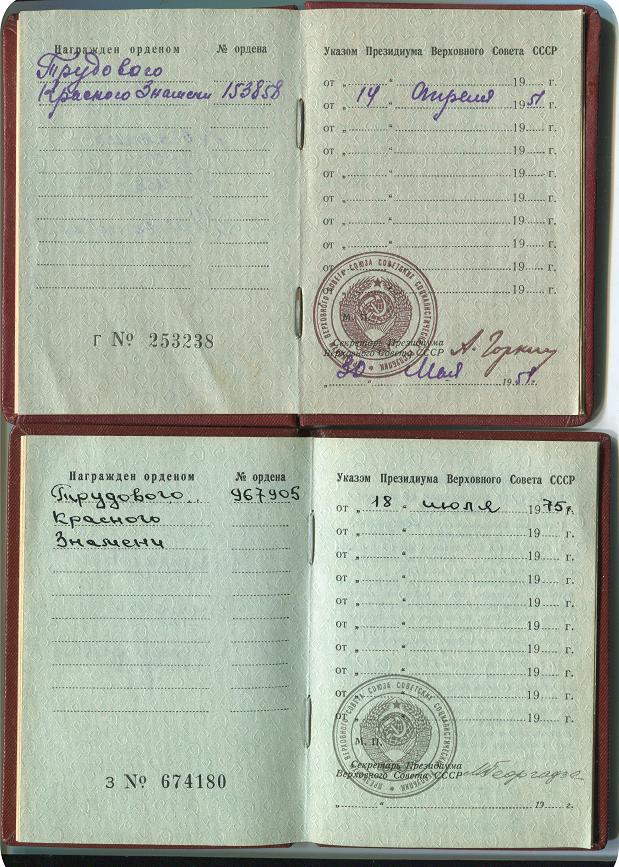 Награжден орденом № ордена
Трудового
Красного Знамени 153858
Г № 253238
Указом Президиума Верховного Совета СССР
от „ “ 19 г.
от „ 14 “ Апреля 1951 г.
от „ “ 19 г.
от „ “ 19 г.
от „ “ 19 г.
от „ “ 19 г.
от „ “ 19 г.
от „ “ 19 г.
от „ “ 19 г.
от „ “ 19 г.
ПРЕЗИДИУМ ВЕРХОВНОГО СОВЕТА СОЮЗА СОВЕТСКИХ СОЦИАЛИСТИЧЕСКИХ РЕСПУБЛИК
М. П.
Секретарь Президиума
Верховного Совета СССР А. Горкин
„ 30 “ Мая 1951 г.
Награжден орденом № ордена
Трудового 967905
Красного
Знамени
З № 674180
Указом Президиума Верховного Совета СССР
от „ 18 “ июля 1975 г.
от „ “ 19 г.
от „ “ 19 г.
от „ “ 19 г.
от „ “ 19 г.
от „ “ 19 г.
от „ “ 19 г.
от „ “ 19 г.
от „ “ 19 г.
от „ “ 19 г.
ПРЕЗИДИУМ ВЕРХОВНОГО СОВЕТА СОЮЗА СОВЕТСКИХ СОЦИАЛИСТИЧЕСКИХ РЕСПУБЛИК
М. П.
Секретарь Президиума
Верховного Совета СССР М Георгадзе
„ “ 19 г.